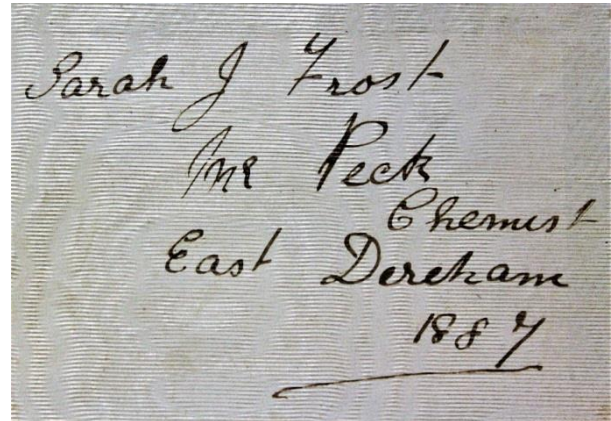 Sarah J Frost
Mr Peck
Chemist
East Dereham
1887